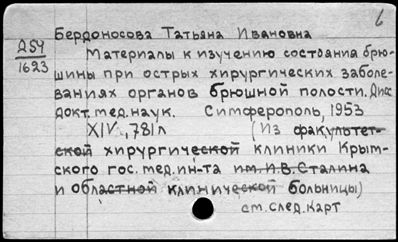 6
Бердоносова Татьяна Ивановна
Д59
1623
Материалы к изучению состояния брю-
шины при острых хирургических заболе-
ваниях органов брюшной полости. Дисс
докт. мед. наук. Симферополь, 1953
XIV, 781 л (Из факультет-
ской хирургической клиники Крым-
ского гос. мед. ин-та им. И.В. Сталина
и областной клинической больницы)
см. след. карт